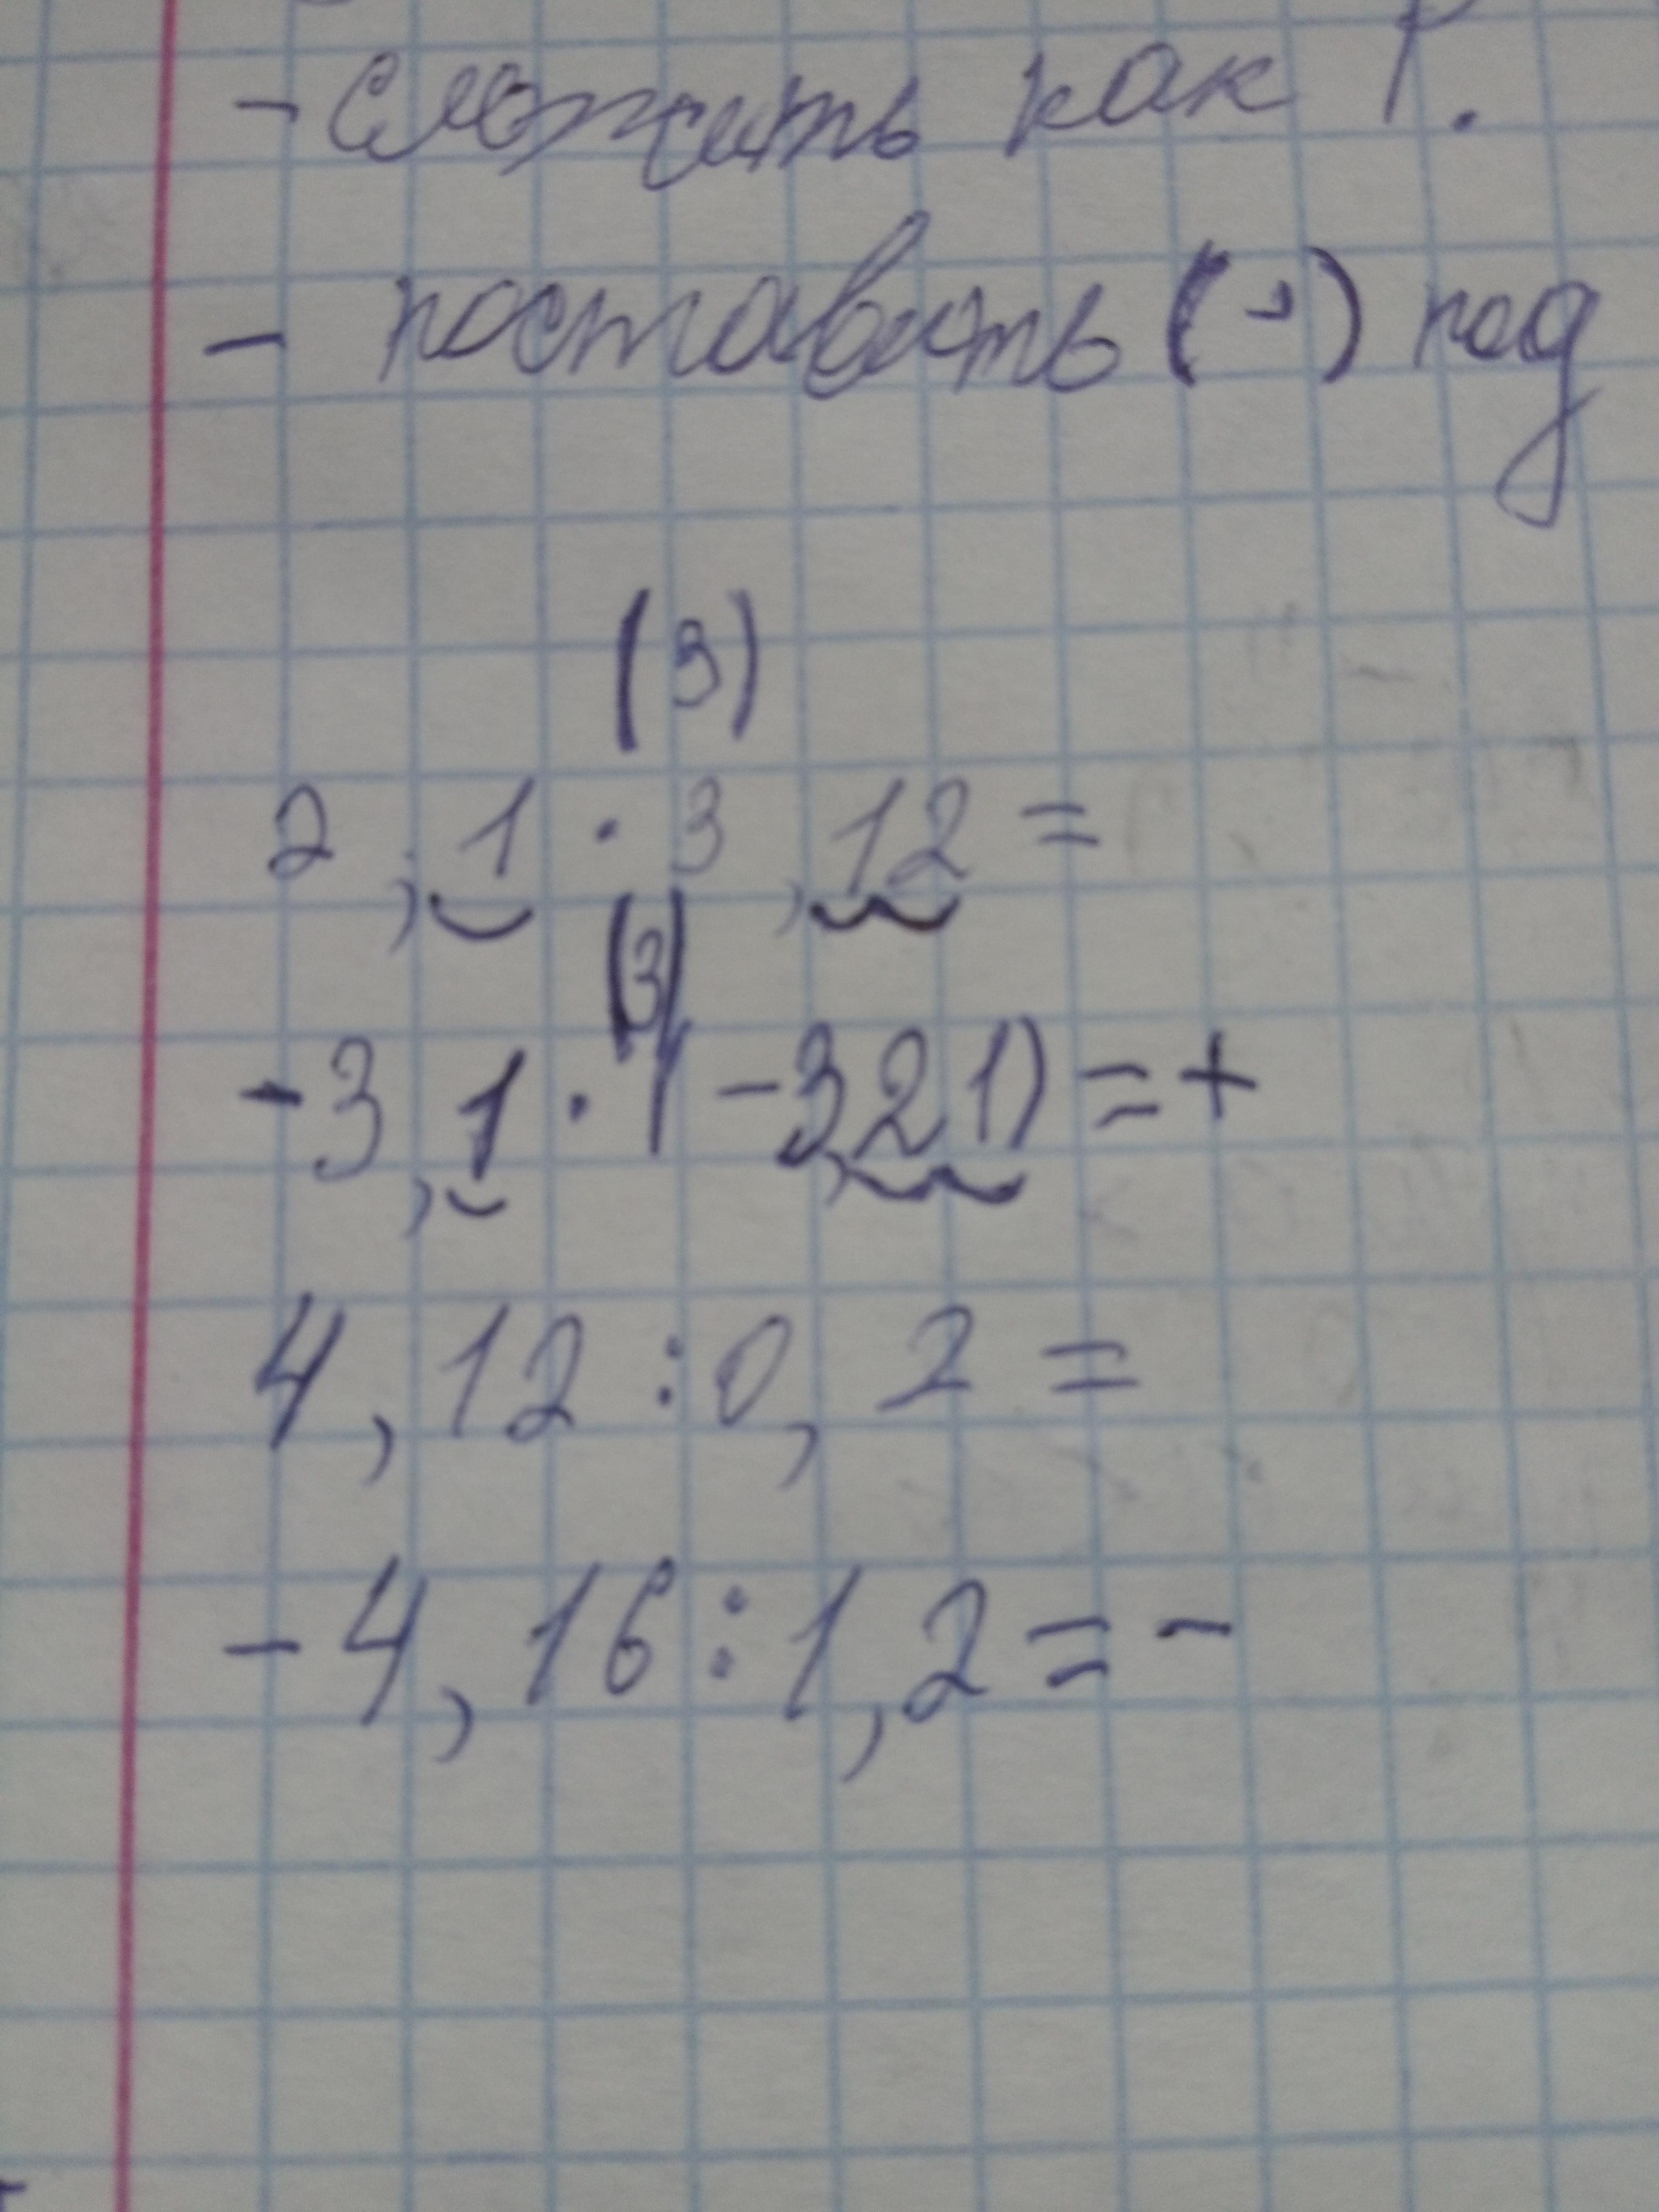 - сложить как
- поставить (,) под
(3)
2,1 · 3,12 =
(3)
-3,1 · (-3,21) = +
4,12 : 0,2 =
-4,16 : 1,2 = -